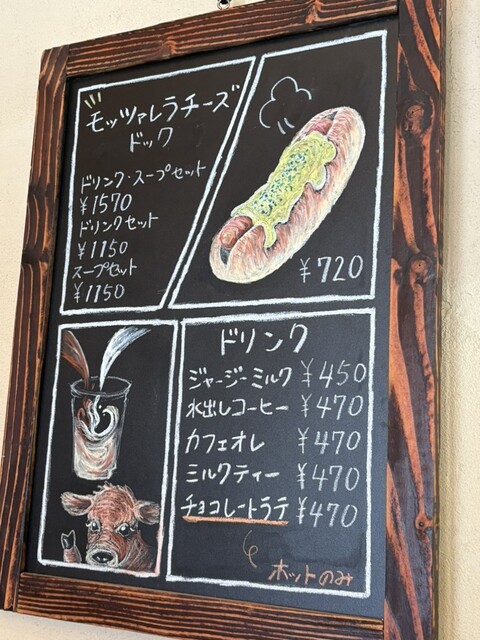 モッツァレラチーズ
ドック
ドリンク・スープセット
¥1570
ドリンクセット
¥1150
スープセット
¥1150
¥720
ドリンク
ジャージーミルク ¥450
水出しコーヒー ¥470
カフェオレ ¥470
ミルクティー ¥470
チョコレートラテ ¥470
ホットのみ